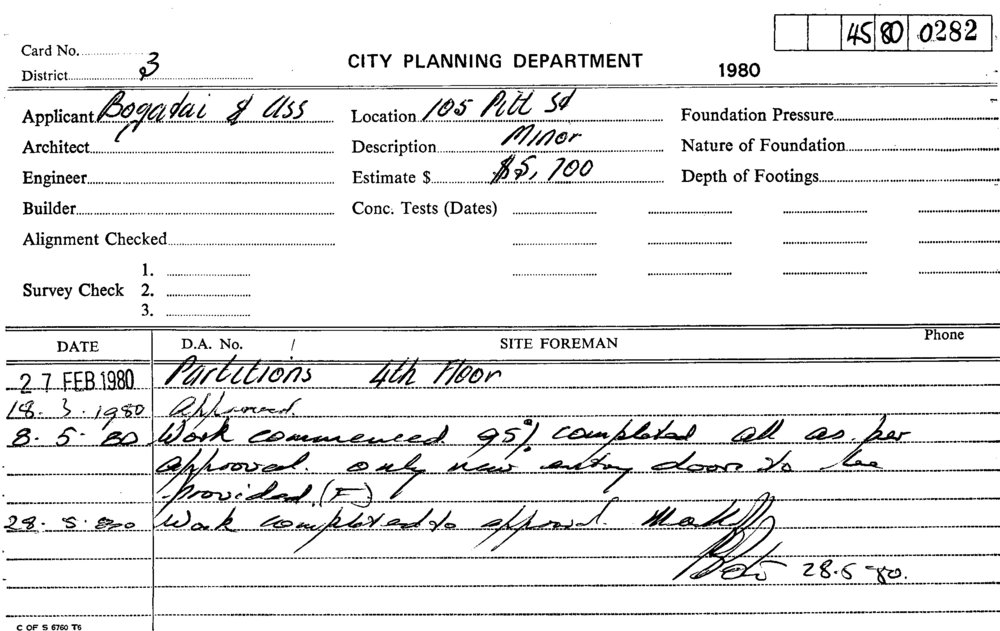 45 80 0282
Card No.
District 3
CITY PLANNING DEPARTMENT
1980
Applicant Bogadai & Ass
Location 105 Pitt St
Foundation Pressure
Architect
Description Minor
Nature of Foundation
Engineer
Estimate $ $5,700
Depth of Footings
Builder
Conc. Tests (Dates)
Alignment Checked
1.
Survey Check 2.
3.
DATE D.A. No. SITE FOREMAN Phone
27 FEB 1980 Partitions 4th Floor
18. 3. 1980 Approved.
8. 5. 80 Work commenced 95% completed all as per
approval. only new entry door to be
provided (F)
28. 5. 80 Work completed to approval.
28.5.80.
C OF S 6760 T6